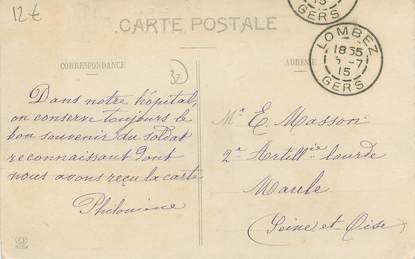 12€
CARTE POSTALE
GERS
LOMBEZ
18 35
-7
15
GERS
CORRESPONDANCE
32
ADRESSE
Dans notre hôpital,
on conserve toujours le
bon souvenir du soldat
reconnaissant dont
nous avons reçu la carte
Philomène
Mr E. Masson
2e Artillie lourde
Maule
(Seine et Oise)